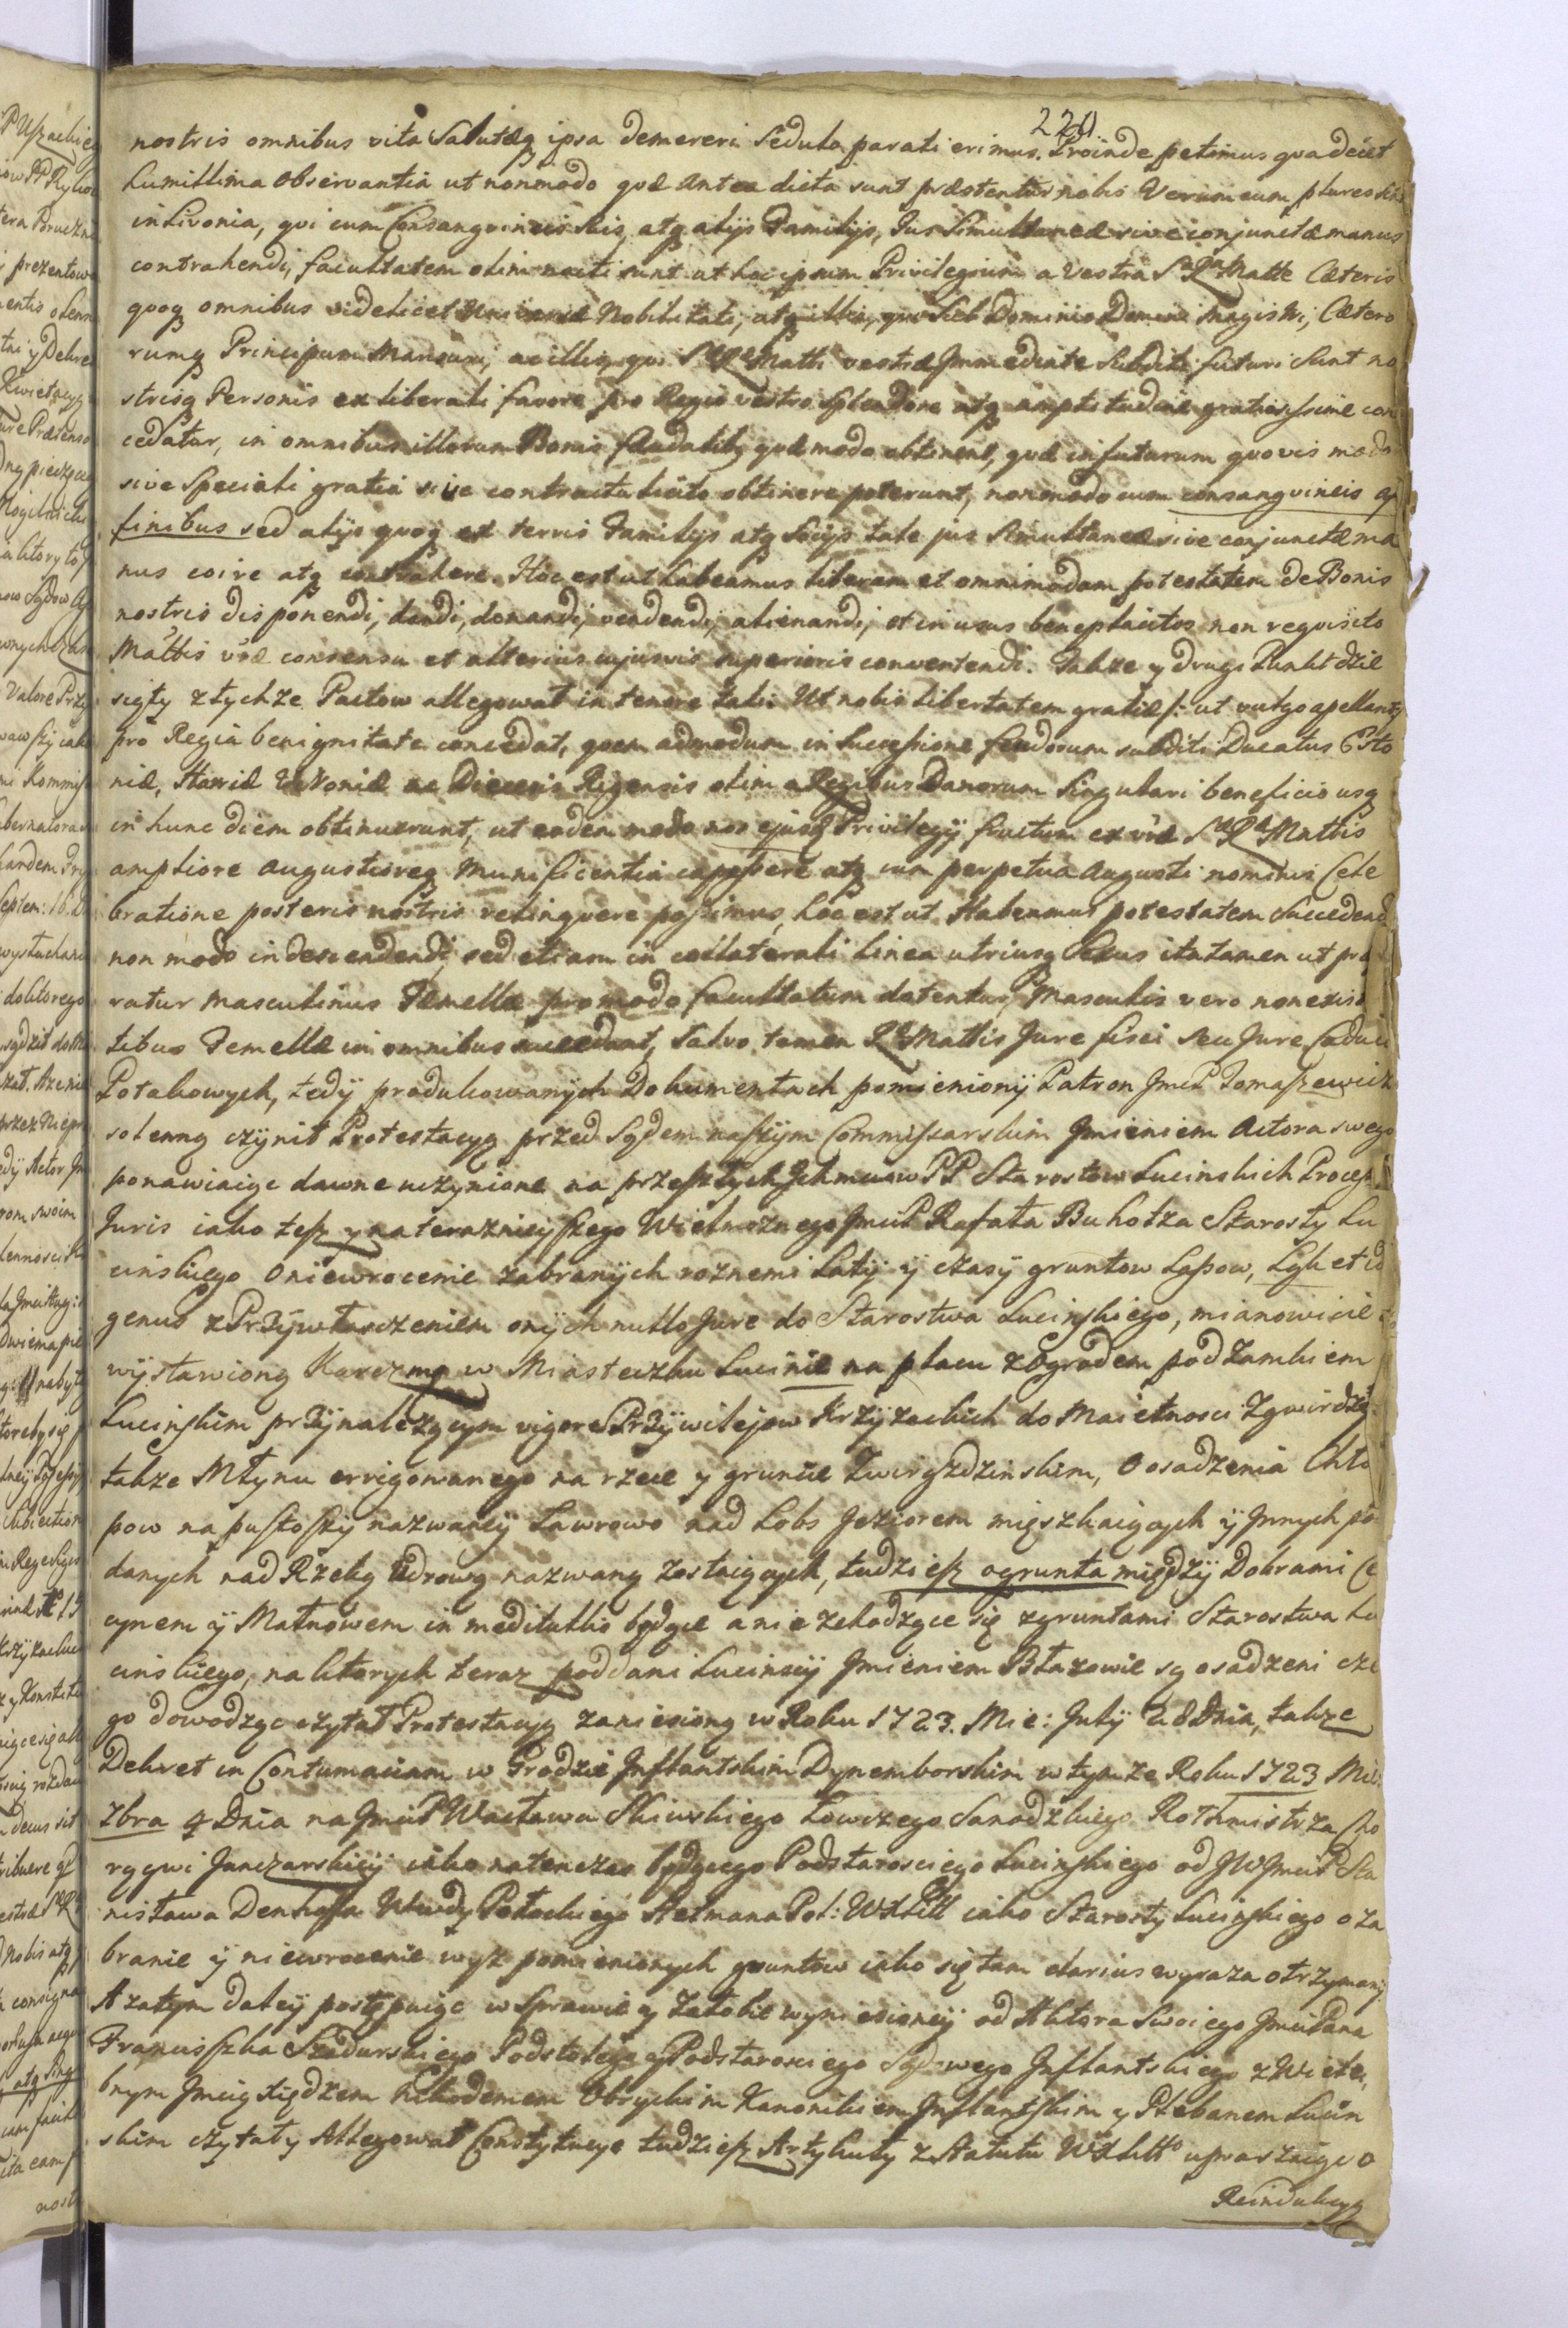 220
nostris omnibus vita Saluteq ipsa demereri Sedulo parati erimus. Proinde petimus qva decet
humillima observantia ut nonmodo qvæ antea dicta sunt præstentur nobis Verum cum plures sint
in Livonia, qvi cum Consangvineis suis, atq alijs Familijs, Jus Simultaneæ sive conjunctæ manus
contrahendi, facultatem olim nacti sunt ut hoc ipsum Privilegium a Vestra S R Matte Cæteris
qvoq omnibus videlicet Universæ Nobilitati, atq illis, qvi sub Dominio Domini Magistri, Cætero
rumq Principum Mansuri, ac illis, qvi S R Matti vestræ Immediate Subditi futuri Sunt no
strisq Personis ex liberali favore pro Regio vestro Splendore atq amplitudine gratiosissime con
cedatur, in omnibus illorum Bonis feudalib, qvæ modo obtinent, qvæ in futurum qvovis modo
sive Speciali gratia sive contractu licito obtinere poterunt, nonmodo cum consangvineis af
finibus sed alijs qvoq ex terris Familijs atq Socijs tale jus Simultaneæ sive conjunctæ ma
nus coire atq contrahere. Hoc est ut habeamus liberam et omnimodam potestatem de Bonis
nostris disponendi, dandi, donandi, vendendi, alienandi, et in usus beneplacitos non reqvisito
Mattis vræ consensu et alterius cujusvis superioris convertendi. Takze y drugi Punkt dzie
sięty z tychze Pactow allegował in tenore taki Ut nobis libertatem gratiæ /: ut vulgo apellant
pro Regia benignitate concedat, qvem admodum in Successione feudorum subditi Ducatus Esto
niæ, Harriæ Vironiæ ac Diæcesis Rigensis olim a Regibus Danorum Singulari beneficio usq
in hunc diem obtinuerunt, ut eodem modo nos ejusq Privilegij fructum ex vræ S R Mattis
ampliore augustioreq munificentia capessere atq cum perpetua augusti nominis Cele
bratione posteris nostris relinqvere possimus, hoc est ut Habeamus potestatem Succedendi
non modo in descendendi, sed etiam in collaterali linea utriusq Sexus ita tamen ut præ
ratur masculinus Femellæ pro modo facultatum dotentur, Masculis vero non exis
tibus Femellæ in omnibus succedant, Salvo tamen R Mattis Jure fisci seu Jure Caduci
Po takowych, tedy produkowanych Dokumentach pomieniony Patron Jmć P Tomaszewicz
solenną czynił Protestacyą przed Sądem naszym Commissarskim Jmieniem Actora swego
ponawiaiąc dawne uczynione na przeszłych Ichmciow PP Starostow Lucinskich Process
Juris iako tesz y na teraznieyszego Wielmoznego Jmci P Rafała Buhołza Starosty Lu
cinskiego o niewrocenie zabranych roznemi Laty y czasy gruntow Lasow, Łąk et id
genus z Przywłaszczeniem onych nullo Jure do Starostwa Lucinskiego, mianowicie
wystawioną Karczmą w Miasteczku Lucinie na placu z Ogrodem pod Zamkiem
Lucinskim przynalezącym vigore Przywilejow Krzyzackich do Maietnosci Zgwirdzy
takze Młynu errigowanego na rzece y gruncie Zwirgzdzinskim, o osadzenia Chło
pow na pustoszy nazwaney Lawrowo nad Lobs Jeziorem mięszkaiących y Jnnych po
danych nad Rzeką Udrową nazwaną zostaiących, tudziesz o grunta między Dobrami Ce
cynem y Małnowem in meditullio będące a nie zchodzące się z gruntami Starostwa Lu
cinskiego, na ktorych teraz poddani Lucinscy Jmieniem Błazowie są osadzeni cze
go dowodząc czytał Protestacyą zaniesioną w Roku 1723. Mie: July 28 Dnia, takze
Dekret in Contumaciam w Grodzie Jnflantskim Dynemborskim w tymze Roku 1723 Mie:
Zbra 9 Dnia na Jmci P Wacława Skiwskiego Łowczego Sanockiego Rothmistrza Cho
rągwi Janczarskiey iako natenczas będącego Podstarosciego Lucinskiego od JW Jmci P Sta
nisława Denhoffa Wdy Połockiego Hetmana Pol: WXLitt iako Starosty Lucinskiego o za
branie y niewrocenie wysz pomienionych gruntow iako się tam clarius wyraza otrzymany.
A zatym daley postępuiąc w Sprawie y Załobie wyniesioney od Aktora Swoiego Jmci Pana
Franciszka Szadurskiego Podstolego y Podstarosciego Sądowego Jnflantskiego z Wiele
bnym Jmcią Xiędzem Nikodemem Obryckim Kanonikiem Jnflantskim y Plebanem Lucin
skim czytał y Allegował Constytucye tudziesz Artykuły z Statutu WXLitt upraszaiąc o
Reindukcyą